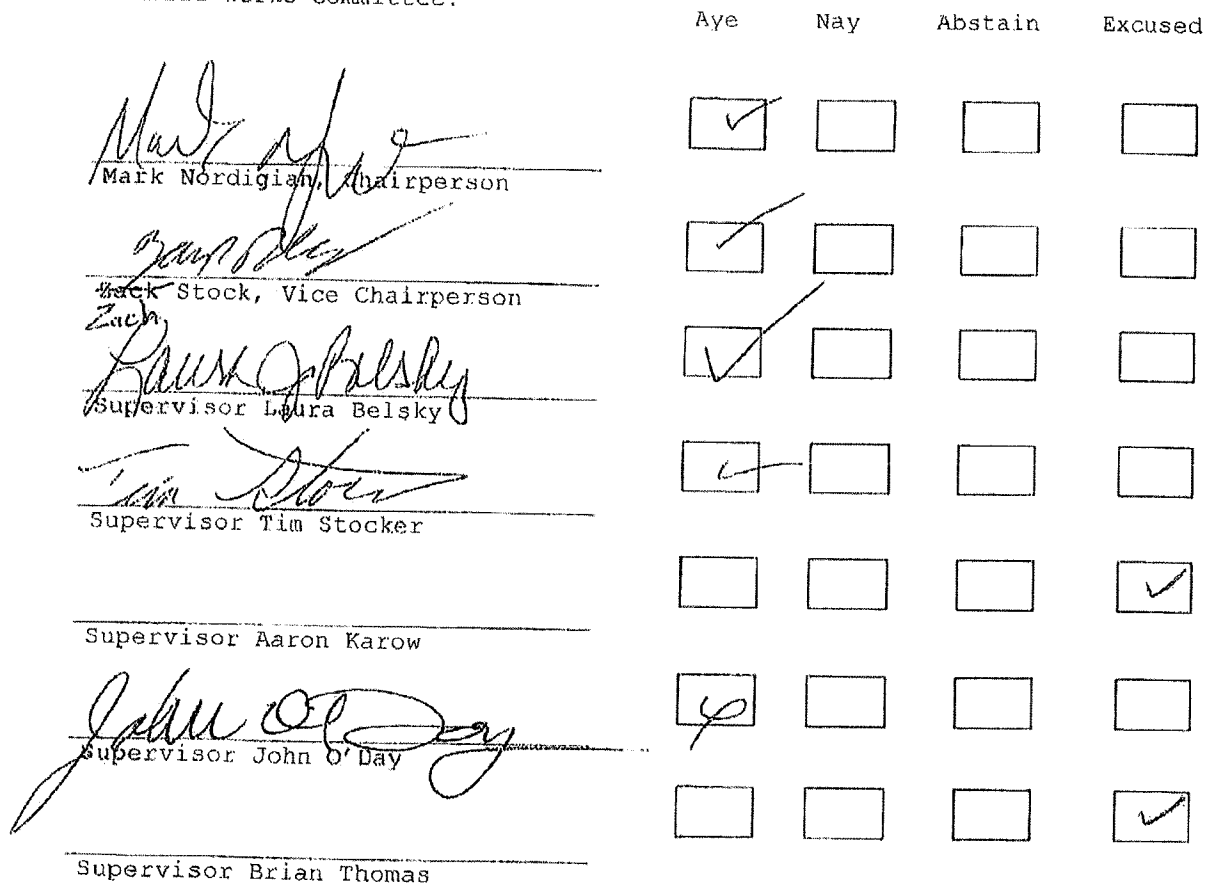 Works Committee.
Aye Nay Abstain Excused
Mark Nordigian, Chairperson
Zack Stock, Vice Chairperson
Zach
Laura J Belsky
Supervisor Laura Belsky
Tim Stocker
Supervisor Tim Stocker
Supervisor Aaron Karow
John O'Day
Supervisor John O'Day
Supervisor Brian Thomas